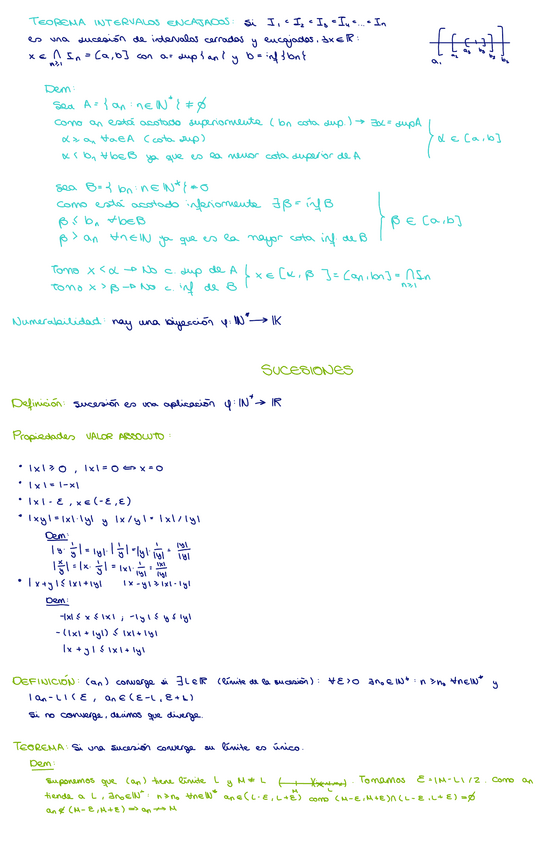 TEOREMA INTERVALOS ENCAJADOS: Si I₁ < I₂ < I₃ < I₄ < ... < Iₙ
es una sucesión de intervalos cerrados y encajados, ∃x∈ℝ:
x ∈ ⋂ Iₙ = [a,b] con a = sup{an} y b = inf{bn}
n≥1
Dem:
Sea A = {an : n∈ℕ*} ≠ ∅
Como an está acotado superiormente (bn cota sup.) → ∃α = supA
α ≥ an ∀a∈A (cota sup)
α < bn ∀b∈B ya que es la menor cota superior de A
α ∈ [a,b]
Sea B = { bn : n∈ℕ*} ≠ 0
Como está acotado inferiormente ∃β = inf B
β ≤ bn ∀b∈B
β > an ∀n∈ℕ ya que es la mayor cota inf. de B
β ∈ [a,b]
Tomo x < α → No c. sup de A
Tomo x > β → No c. inf de B
x ∈ [α, β] = [an, bn] = ⋂ In
n≥1
Numerabilidad: hay una biyección φ: ℕ* → K
SUCESIONES
Definición: sucesión es una aplicación φ: ℕ* → ℝ
Propiedades VALOR ABSOLUTO:
• |x| ≥ 0 , |x| = 0 ⟺ x = 0
• |x| = |-x|
• |x| - ε , x ∈ (-ε, ε)
• |xy| = |x|·|y| y |x/y| = |x|/|y|
Dem:
|y · 1/y| = |y| · |1/y| = |y| · 1/|y| = |y|/|y|
|x/y| = |x · 1/y| = |x| · 1/|y| = |x|/|y|
• |x+y| ≤ |x|+|y| |x-y| ≥ |x|-|y|
Dem:
-|x| ≤ x ≤ |x| ; -|y| ≤ y ≤ |y|
-(|x|+|y|) ≤ |x|+|y|
|x+y| ≤ |x|+|y|
DEFINICIÓN: (an) converge si ∃L∈ℝ (límite de la sucesión): ∀ε>0 ∃n₀∈ℕ* : n ≥ n₀ ∀n∈ℕ* y
|an - L| < ε , an ∈ (ε-L, ε+L)
Si no converge, decimos que diverge.
TEOREMA: Si una sucesión converge su límite es único.
Dem:
Suponemos que (an) tiene límite L y M ≠ L. Tomamos ε = |M-L|/2. Como an
tiende a L, ∃n₀∈ℕ* : n ≥ n₀ ∀n∈ℕ* an ∈ (L-ε, L+ε) como (M-ε, M+ε) ∩ (L-ε, L+ε) = ∅
an ∉ (M-ε, M+ε) ⇒ an ↛ M